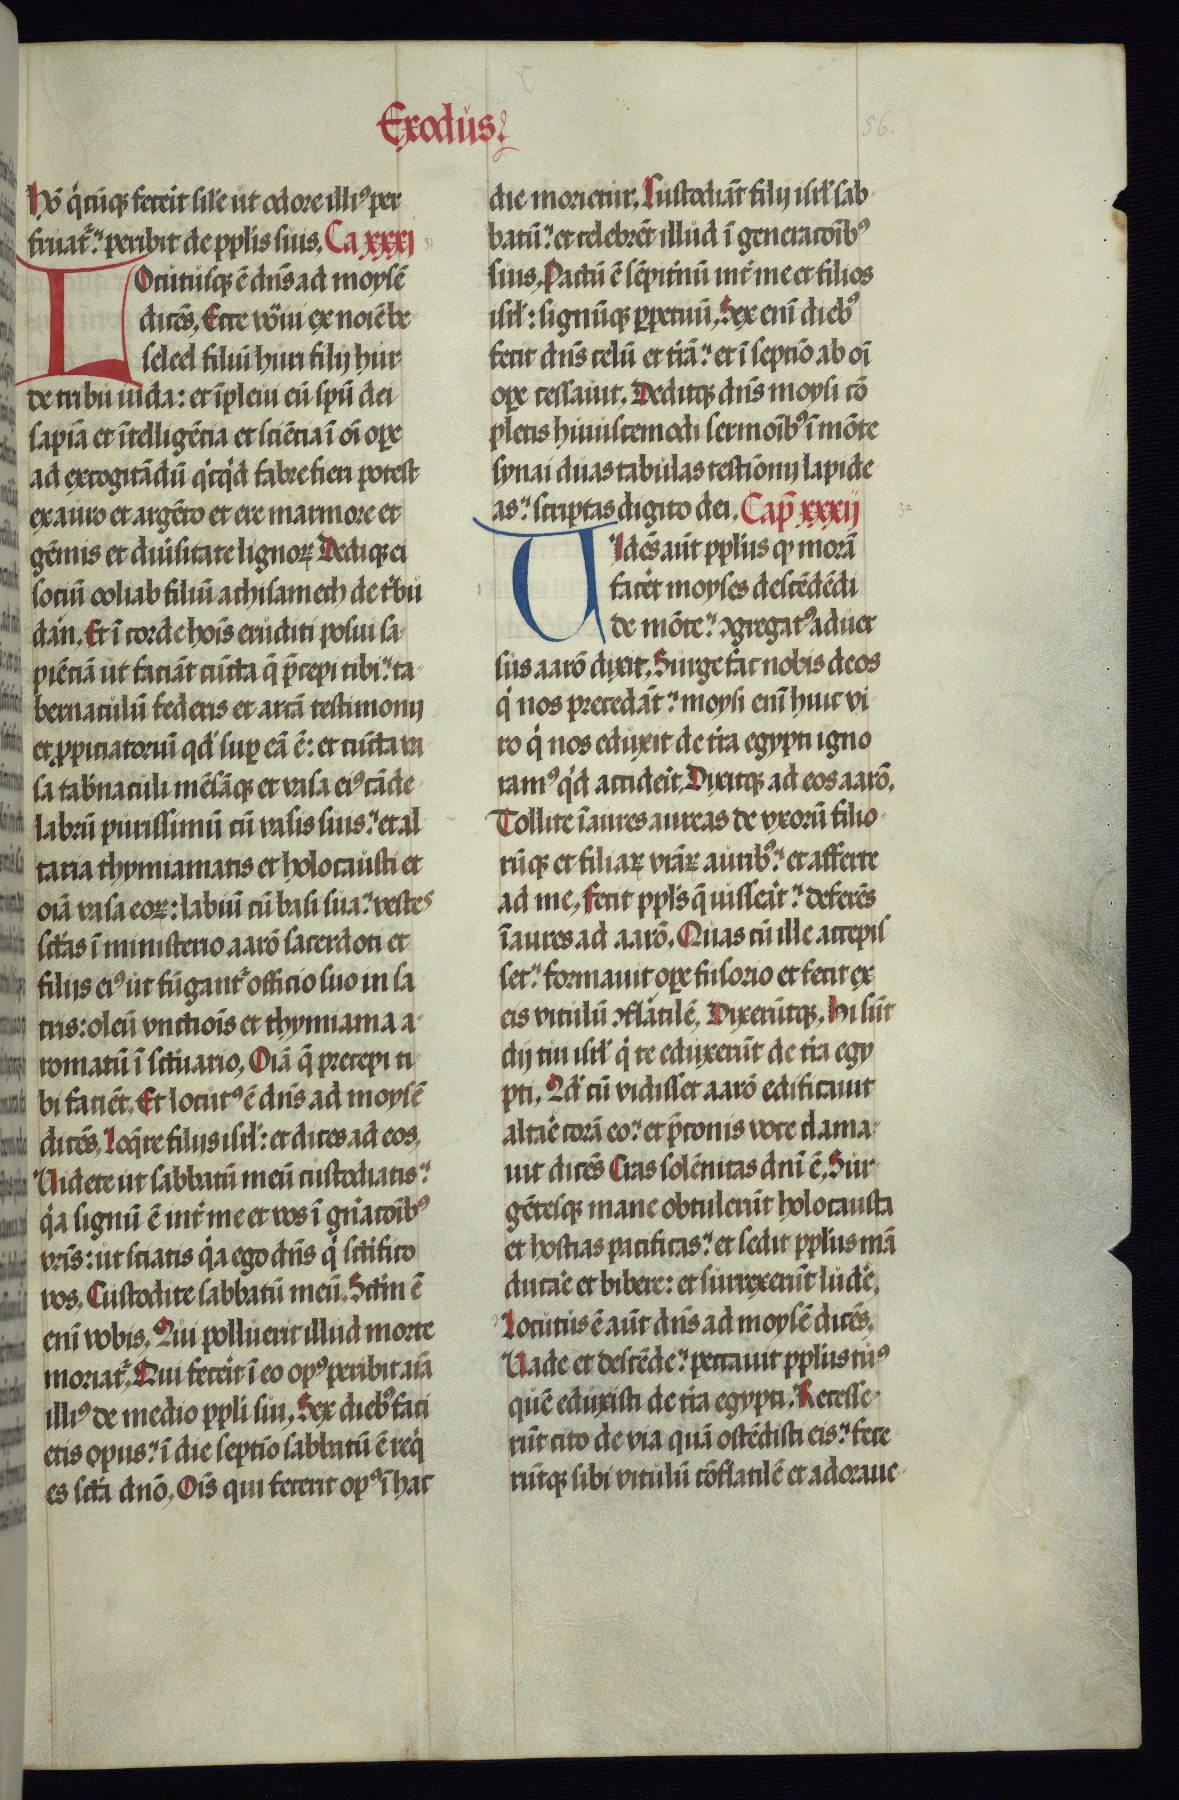 Exodus
56.
Hō q̇cūq̨ fecerit sil'e ut odore illi⁹ per
fruat᷑: peribit de ppl'is suis. Ca xxxj
31
Locutusq̨ ē dn̄s ad moysē
dicēs. Ecce vōui ex noīe be
seleel filiū huri filij hur
de tribu iuda: et īpleui eū sp̄u dei
sapīa et ītelligēcia et sciēcia ī oī oꝑe
ad excogitādū q̇cq̇d fabre fieri potest
ex auro et argēto et ere marmore et
gēmis et diu'sitate lignoꝝ Dediq̨ ei
sociū ooliab filiū achisamech de t'bu
dan. Et ī corde hoīs eruditi posui sa-
piēciā ut faciāt cūcta q̄ p̄cepi tibi: ta-
bernaculū federis et arcā testimonij
et ꝓpiciatoriū qd' suꝑ eā ē: et cūcta va
sa tab'naculi mēsāq̨ et vasa ei⁹ cāde
labrū purissimū cū vasis suis: et al
taria thymiamatis et holocausti et
oīa vasa eoꝝ: labiū cū basi sua: vestes
sctās ī ministerio aarō sacerdoti et
filiis ei⁹ ut fūgant᷑ officio suo in sa
cris: oleū vnctiōis et thymiama a-
romatū ī sctuario. Oīa q̄ precepi ti-
bi faciēt. Et locut⁹ ē dn̄s ad moysē
dicēs. Loq̇re filijs isrl': et dices ad eos.
Uidete ut sabbatū meū custodiatis:
q̇a signū ē int' me et vos ī gn̄acōib⁹
vr̄is: ut sciatis q̇a ego dn̄s q̇ sctifico
vos. Custodite sabbatū meū. Sctm̄ ē
enī vobis. Qui polluerit illud morte
moriat᷑. Qui fecerit ī eo op⁹ peribit aīa
illi⁹ de medio ppli sui. Sex dieb⁹ faci
etis opus: ī die septīo sabbatū ē req̇
es sctā dn̄o. Oīs qui fecerit op⁹ ī hac
die morietur. Custodiāt filij isrl' sab
batū: et celebrēt illud ī generacōib⁹
suis. Pactū ē sēpit'nū int' me et filios
isrl': signūq̨ ꝑpetuū. Sex enī dieb⁹
fecit dn̄s celū et t'rā: et ī septīo ab oī
oꝑe cessauit. Deditq̨ dn̄s moysi cō
pletis huiuscemodi sermōib⁹ ī mōte
synai duas tabulas testiōnij lapide
as: scriptas digito dei. Cap̄ xxxij
32
Uidēs aūt ppl'us qꝫ morā
facer̄t moyses descēdēdi
de mōte: ꝯgregat⁹ aduer
sus aarō dixit. Surge fac nobis deos
q̇ nos precedāt: moysi enī huic vi
ro q̇ nos eduxit de t'ra egypti igno
ram⁹ q̇d acciderit. Dixitq̨ ad eos aarō.
Tollite īaures aureas de vxorū filio
rūq̨ et filiaꝝ vr̄aꝝ aurib⁹: et afferte
ad me. Fecit ppl's q̄ iusserāt: deferēs
īaures ad aarō. Quas cū ille accepis
set: formauit oꝑe fusorio et fecit ex
eis vitulū ꝯflatilē. Dixerūtq̨. Hi sūt
dij tui isrl' q̇ te eduxerūt de t'ra egy
pti. Qd' cū vidisset aarō edificauit
altar̄e corā eo: et p̄conis voce clama-
uit dicēs Cras solēnitas dn̄i ē. Sur-
gētesq̨ mane obtulerūt holocausta
et hostias pacificas: et sedit ppl'us mā
ducar̄e et bibere: et surrexerūt luder̄e.
Locutus ē aūt dn̄s ad moysē dicēs.
Uade et descēde: peccauit ppl'us tu⁹
quē eduxisti de t'ra egypti. Recesse-
rūt cito de via quā ostēdisti eis: fece
rūtq̨ sibi vitulū cōflatilē et adoraue-